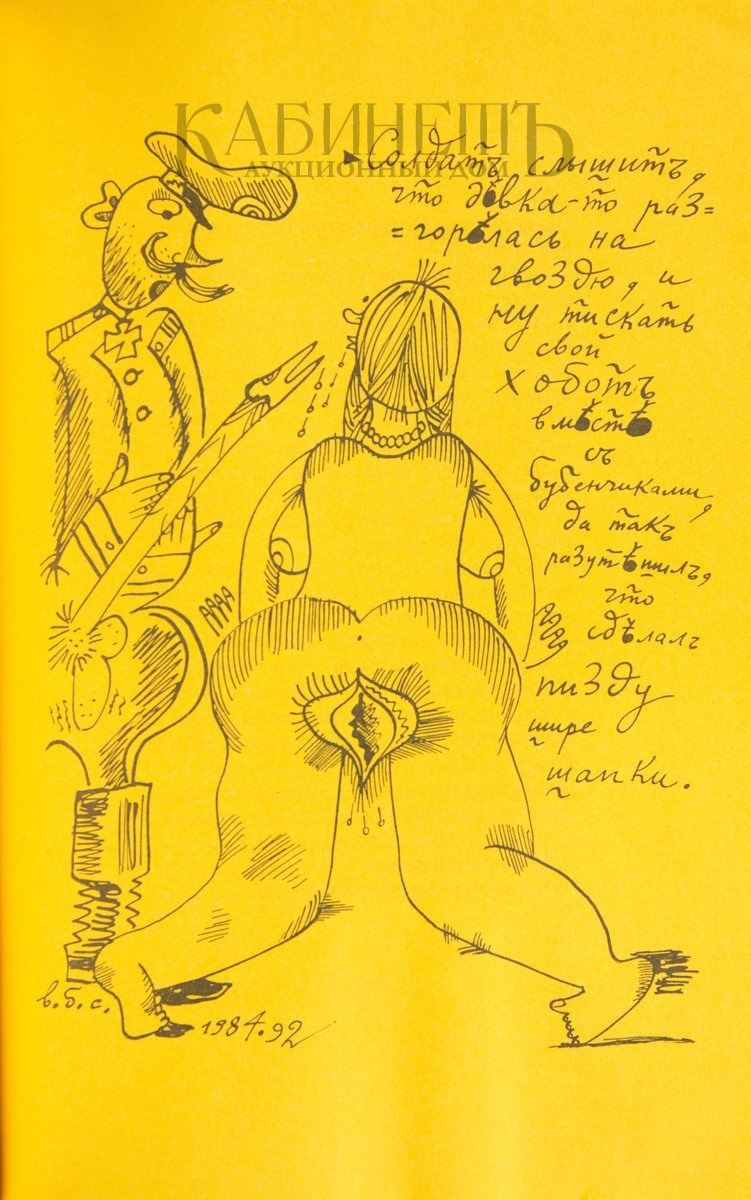 КАБИНЕТЪ
АУКЦИОННЫЙ ДОМ
Солдатъ слышитъ,
что дѣвка-то раз=
=горѣлась на
гвоздю, и
ну тискать
свой
хоботъ
вмѣстѣ
съ
бубенчиками,
да такъ
разутѣшилъ,
что
сдѣлалъ
пизду
шире
шапки.
в.б.с.
1984.92